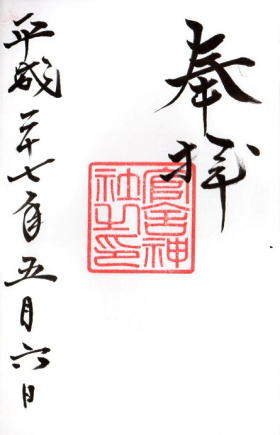 奉拝
官舎神
社之印
平成二十七年五月六日